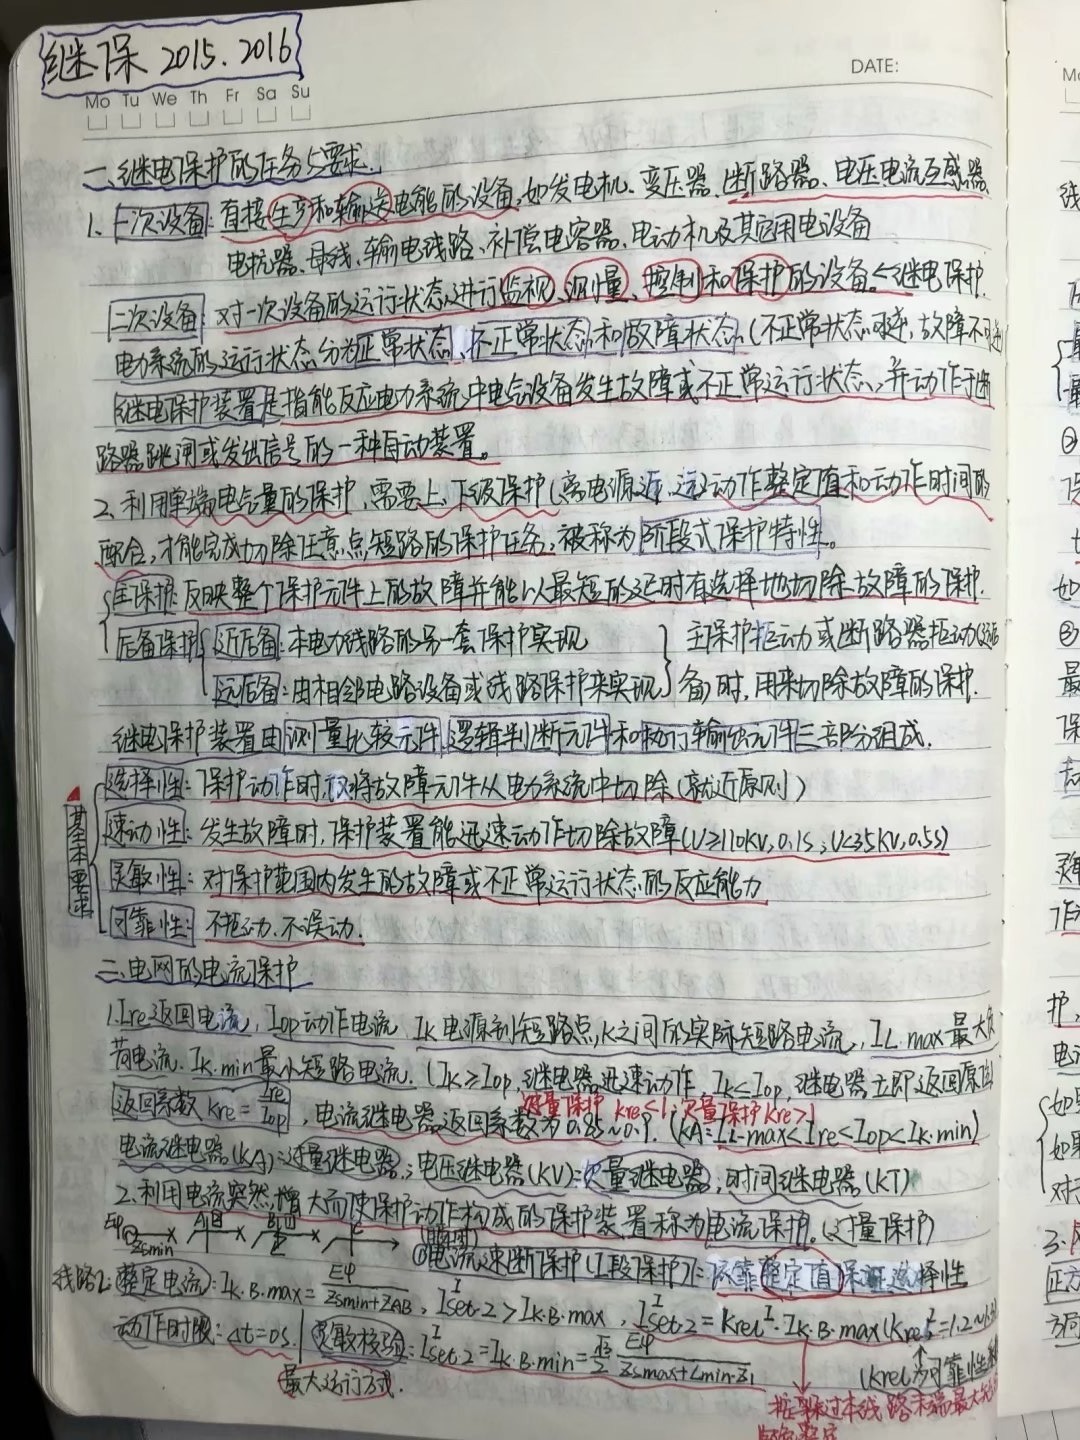 继保 2015.2016
DATE:
Mo Tu We Th Fr Sa Su
一、继电保护的任务与要求.
1、一次设备: 直接生产和输送电能的设备,如发电机、变压器、断路器、电压电流互感器、
电抗器、母线、输电线路、补偿电容器、电动机及其它用电设备
二次设备: 对一次设备的运行状态进行监视、测量、控制和保护的设备。←继电保护.
电力系统的运行状态分为正常状态、不正常状态和故障状态.(不正常状态可逆,故障不可逆
继电保护装置是指能反应电力系统中电气设备发生故障或不正常运行状态,并动作于断
路器跳闸或发出信号的一种自动装置。
2、利用单端电气量的保护,需要上、下级保护(离电源近、远)动作整定值和动作时间的
配合,才能完成切除任意点短路的保护任务,被称为阶段式保护特性。
主保护: 反映整个保护元件上的故障并能以最短的延时有选择地切除故障的保护.
后备保护 近后备: 本电力线路的另一套保护实现 主保护拒动或断路器拒动(远后
远后备: 由相邻电路设备或线路保护来实现 备)时,用来切除故障的保护.
继电保护装置由测量比较元件、逻辑判断元件和执行输出元件三部分组成.
基本要求
选择性: 保护动作时,仅将故障元件从电力系统中切除(就近原则)
速动性: 发生故障时,保护装置能迅速动作切除故障(U≥110KV,0.1S;U<35KV,0.5S)
灵敏性: 对保护范围内发生的故障或不正常运行状态的反应能力
可靠性: 不拒动、不误动.
二、电网的电流保护
1.Ire返回电流,Iop动作电流 Ik电源到短路点K之间的实际短路电流,IL.max最大负
荷电流.Ik.min最小短路电流.(Ik≥Iop,继电器迅速动作,Ik≤Iop,继电器立即返回原位
过量保护 Kre<1;欠量保护Kre>1
返回系数 Kre=Ire/Iop,电流继电器返回系数为0.85~0.9.(KA:IL.max<Ire<Iop<Ik.min)
电流继电器(KA):过量继电器;电压继电器(KV):欠量继电器;时间继电器(KT)
2.利用电流突然增大而使保护动作构成的保护装置称为电流保护.(过量保护)
Eφ Zsmin × A × B × C
①电流速断保护(I段保护):依靠整定值保证选择性
线路2: 整定电流: Ik.B.max=Eφ/(Zsmin+ZAB), I^I set.2>Ik.B.max, I^I set.2=Krel^I·Ik.B.max(Krel^I=1.2~1.3)
动作时限: Δt=0s. 灵敏校验: I^I set.2=Ik.B.min=√3/2 Eφ/(Zsmax+Lmin·Z1) (Krel为可靠性系
最大运行方式.
末端最大